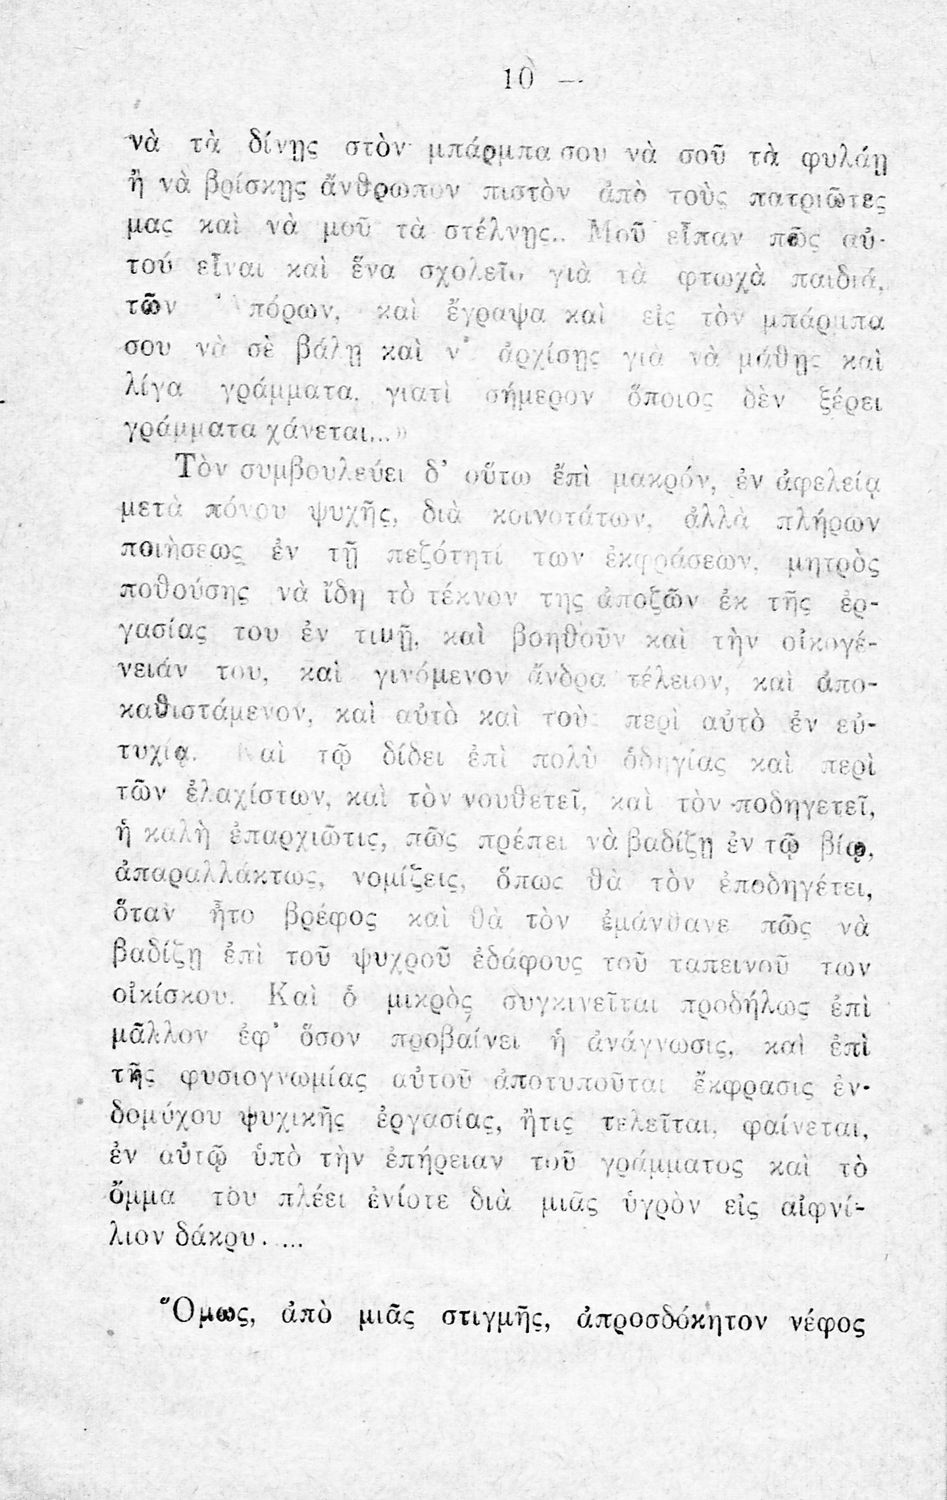 10 —
νὰ τὰ δίνῃς στὸν μπάρμπα σου νὰ σοῦ τὰ φυλάῃ
ἢ νὰ βρίσκῃς ἄνθρωπον πιστὸν ἀπὸ τοὺς πατριῶτες
μας καὶ νὰ μοῦ τὰ στέλνῃς.. Μοῦ εἶπαν πῶς αὐ-
τοῦ εἶναι καὶ ἕνα σχολεῖο γιὰ τὰ φτωχὰ παιδιά,
τῶν Ἀπόρων, καὶ ἔγραψα καὶ εἰς τὸν μπάρμπα
σου νὰ σὲ βάλῃ καὶ ν' ἀρχίσῃς γιὰ νὰ μάθῃς καὶ
λίγα γράμματα, γιατὶ σήμερον ὅποιος δὲν ξέρει
γράμματα χάνεται...»
Τὸν συμβουλεύει δ' οὕτω ἔπὶ μακρόν, ἐν ἀφελείᾳ
μετὰ πόνου ψυχῆς, διὰ κοινοτάτων, ἀλλὰ πλήρων
ποιήσεως ἐν τῇ πεζότητί των ἐκφράσεων, μητρὸς
ποθούσης νὰ ἴδῃ τὸ τέκνον της ἀποζῶν ἐκ τῆς ἐρ-
γασίας του ἐν τιμῇ, καὶ βοηθοῦν καὶ τὴν οἰκογέ-
νειάν του, καὶ γινόμενον ἄνδρα τέλειον, καὶ ἀπο-
καθιστάμενον, καὶ αὐτὸ καὶ τοὺς περὶ αὐτὸ ἐν εὐ-
τυχίᾳ. Καὶ τῷ δίδει ἐπὶ πολὺ ὁδηγίας καὶ περὶ
τῶν ἐλαχίστων, καὶ τὸν νουθετεῖ, καὶ τὸν ποδηγετεῖ,
ἡ καλὴ ἐπαρχιῶτις, πῶς πρέπει νὰ βαδίζῃ ἐν τῷ βίῳ,
ἀπαραλλάκτως, νομίζεις, ὅπως θὰ τὸν ἐποδηγέτει,
ὅταν ἦτο βρέφος καὶ θὰ τὸν ἐμάνθανε πῶς νὰ
βαδίζῃ ἐπὶ τοῦ ψυχροῦ ἐδάφους τοῦ ταπεινοῦ των
οἰκίσκου. Καὶ ὁ μικρὸς συγκινεῖται προδήλως ἐπὶ
μᾶλλον ἐφ' ὅσον προβαίνει ἡ ἀνάγνωσις, καὶ ἐπὶ
τῆς φυσιογνωμίας αὐτοῦ ἀποτυποῦται ἔκφρασις ἐν-
δομύχου ψυχικῆς ἐργασίας, ἥτις τελεῖται, φαίνεται,
ἐν αὐτῷ ὑπὸ τὴν ἐπήρειαν τοῦ γράμματος καὶ τὸ
ὄμμα του πλέει ἐνίοτε διὰ μιᾶς ὑγρὸν εἰς αἰφνί-
λιον δάκρυ. ...
Ὅμως, ἀπὸ μιᾶς στιγμῆς, ἀπροσδόκητον νέφος